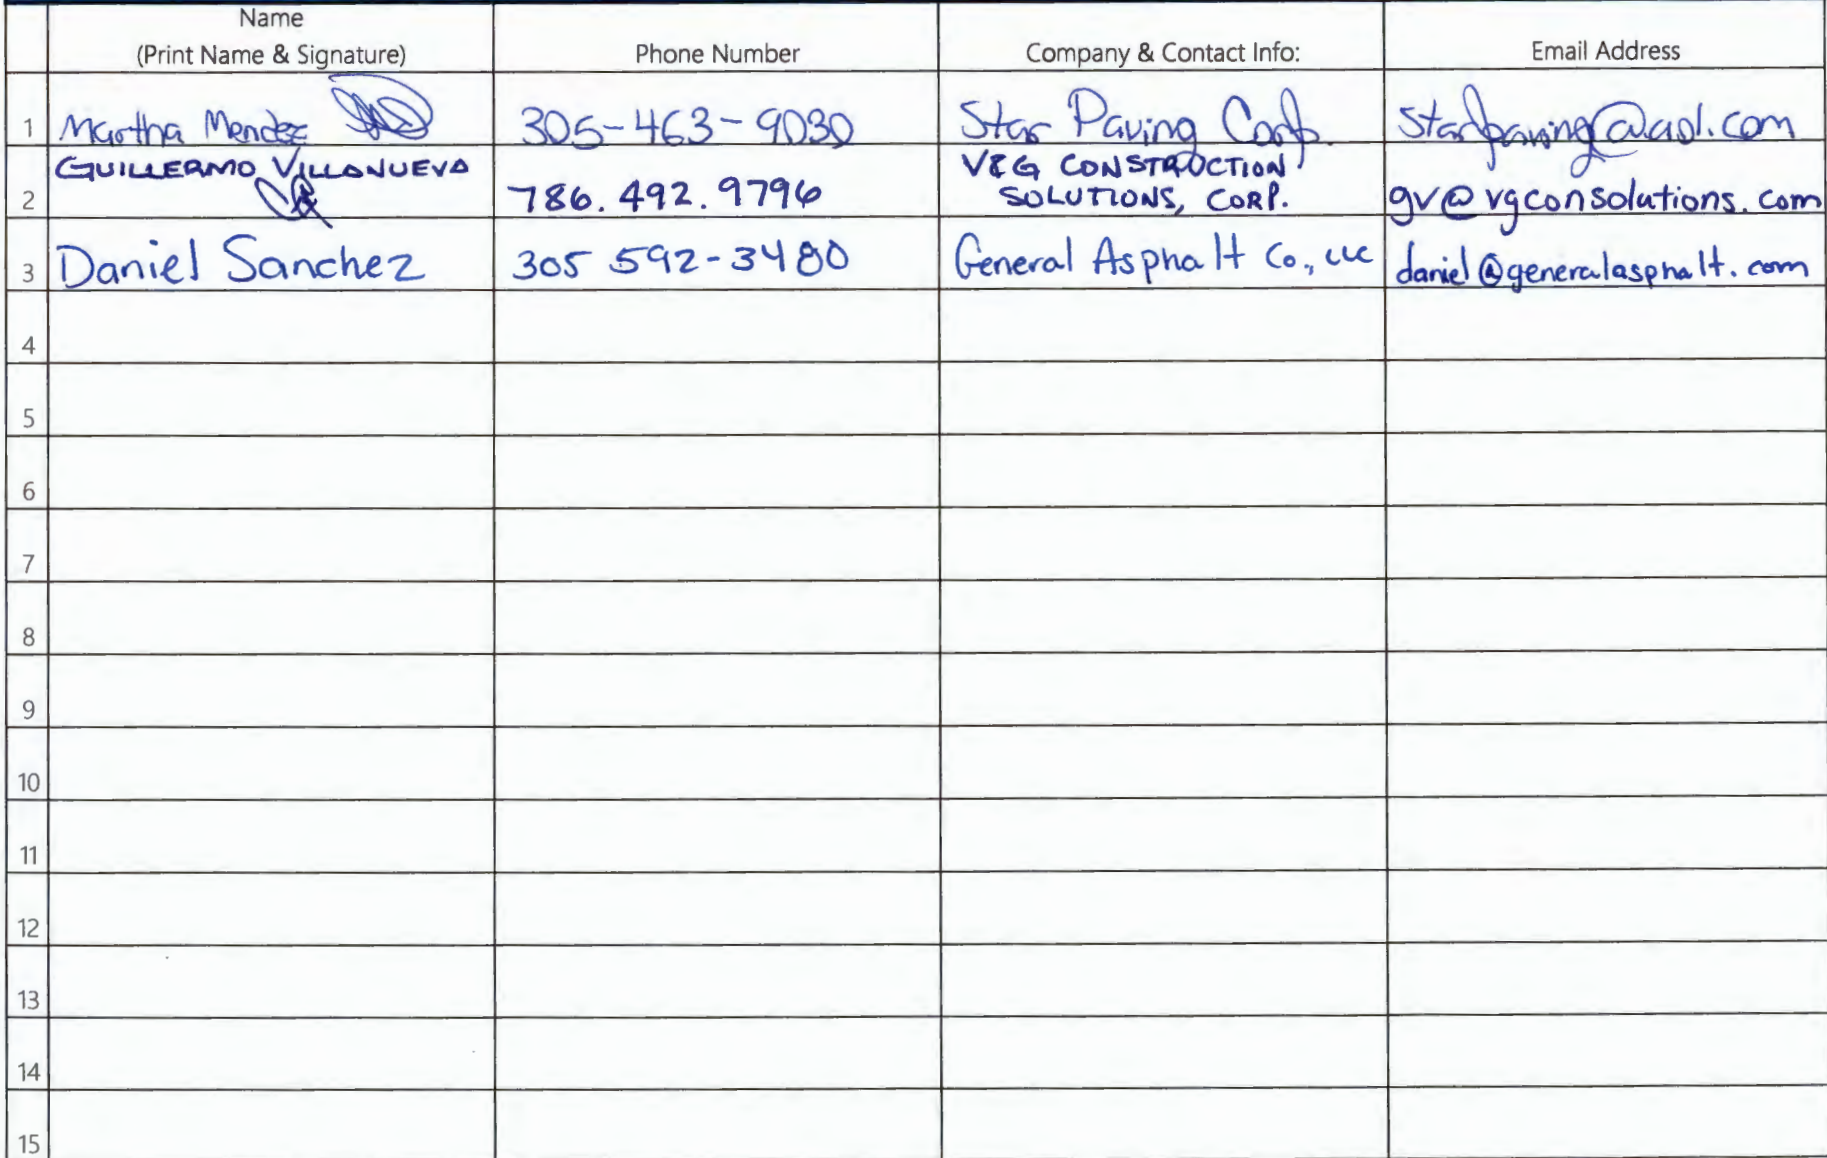 Name
(Print Name & Signature) Phone Number Company & Contact Info: Email Address
1 Martha Mendez 305-463-9030 Star Paving Corp. Starpaving@aol.com
2 GUILLERMO VILLANUEVA 786.492.9796 V&G CONSTRUCTION
SOLUTIONS, CORP. gv@vgconsolutions.com
3 Daniel Sanchez 305 592-3480 General Asphalt Co., LLC daniel@generalasphalt.com
4
5
6
7
8
9
10
11
12
13
14
15